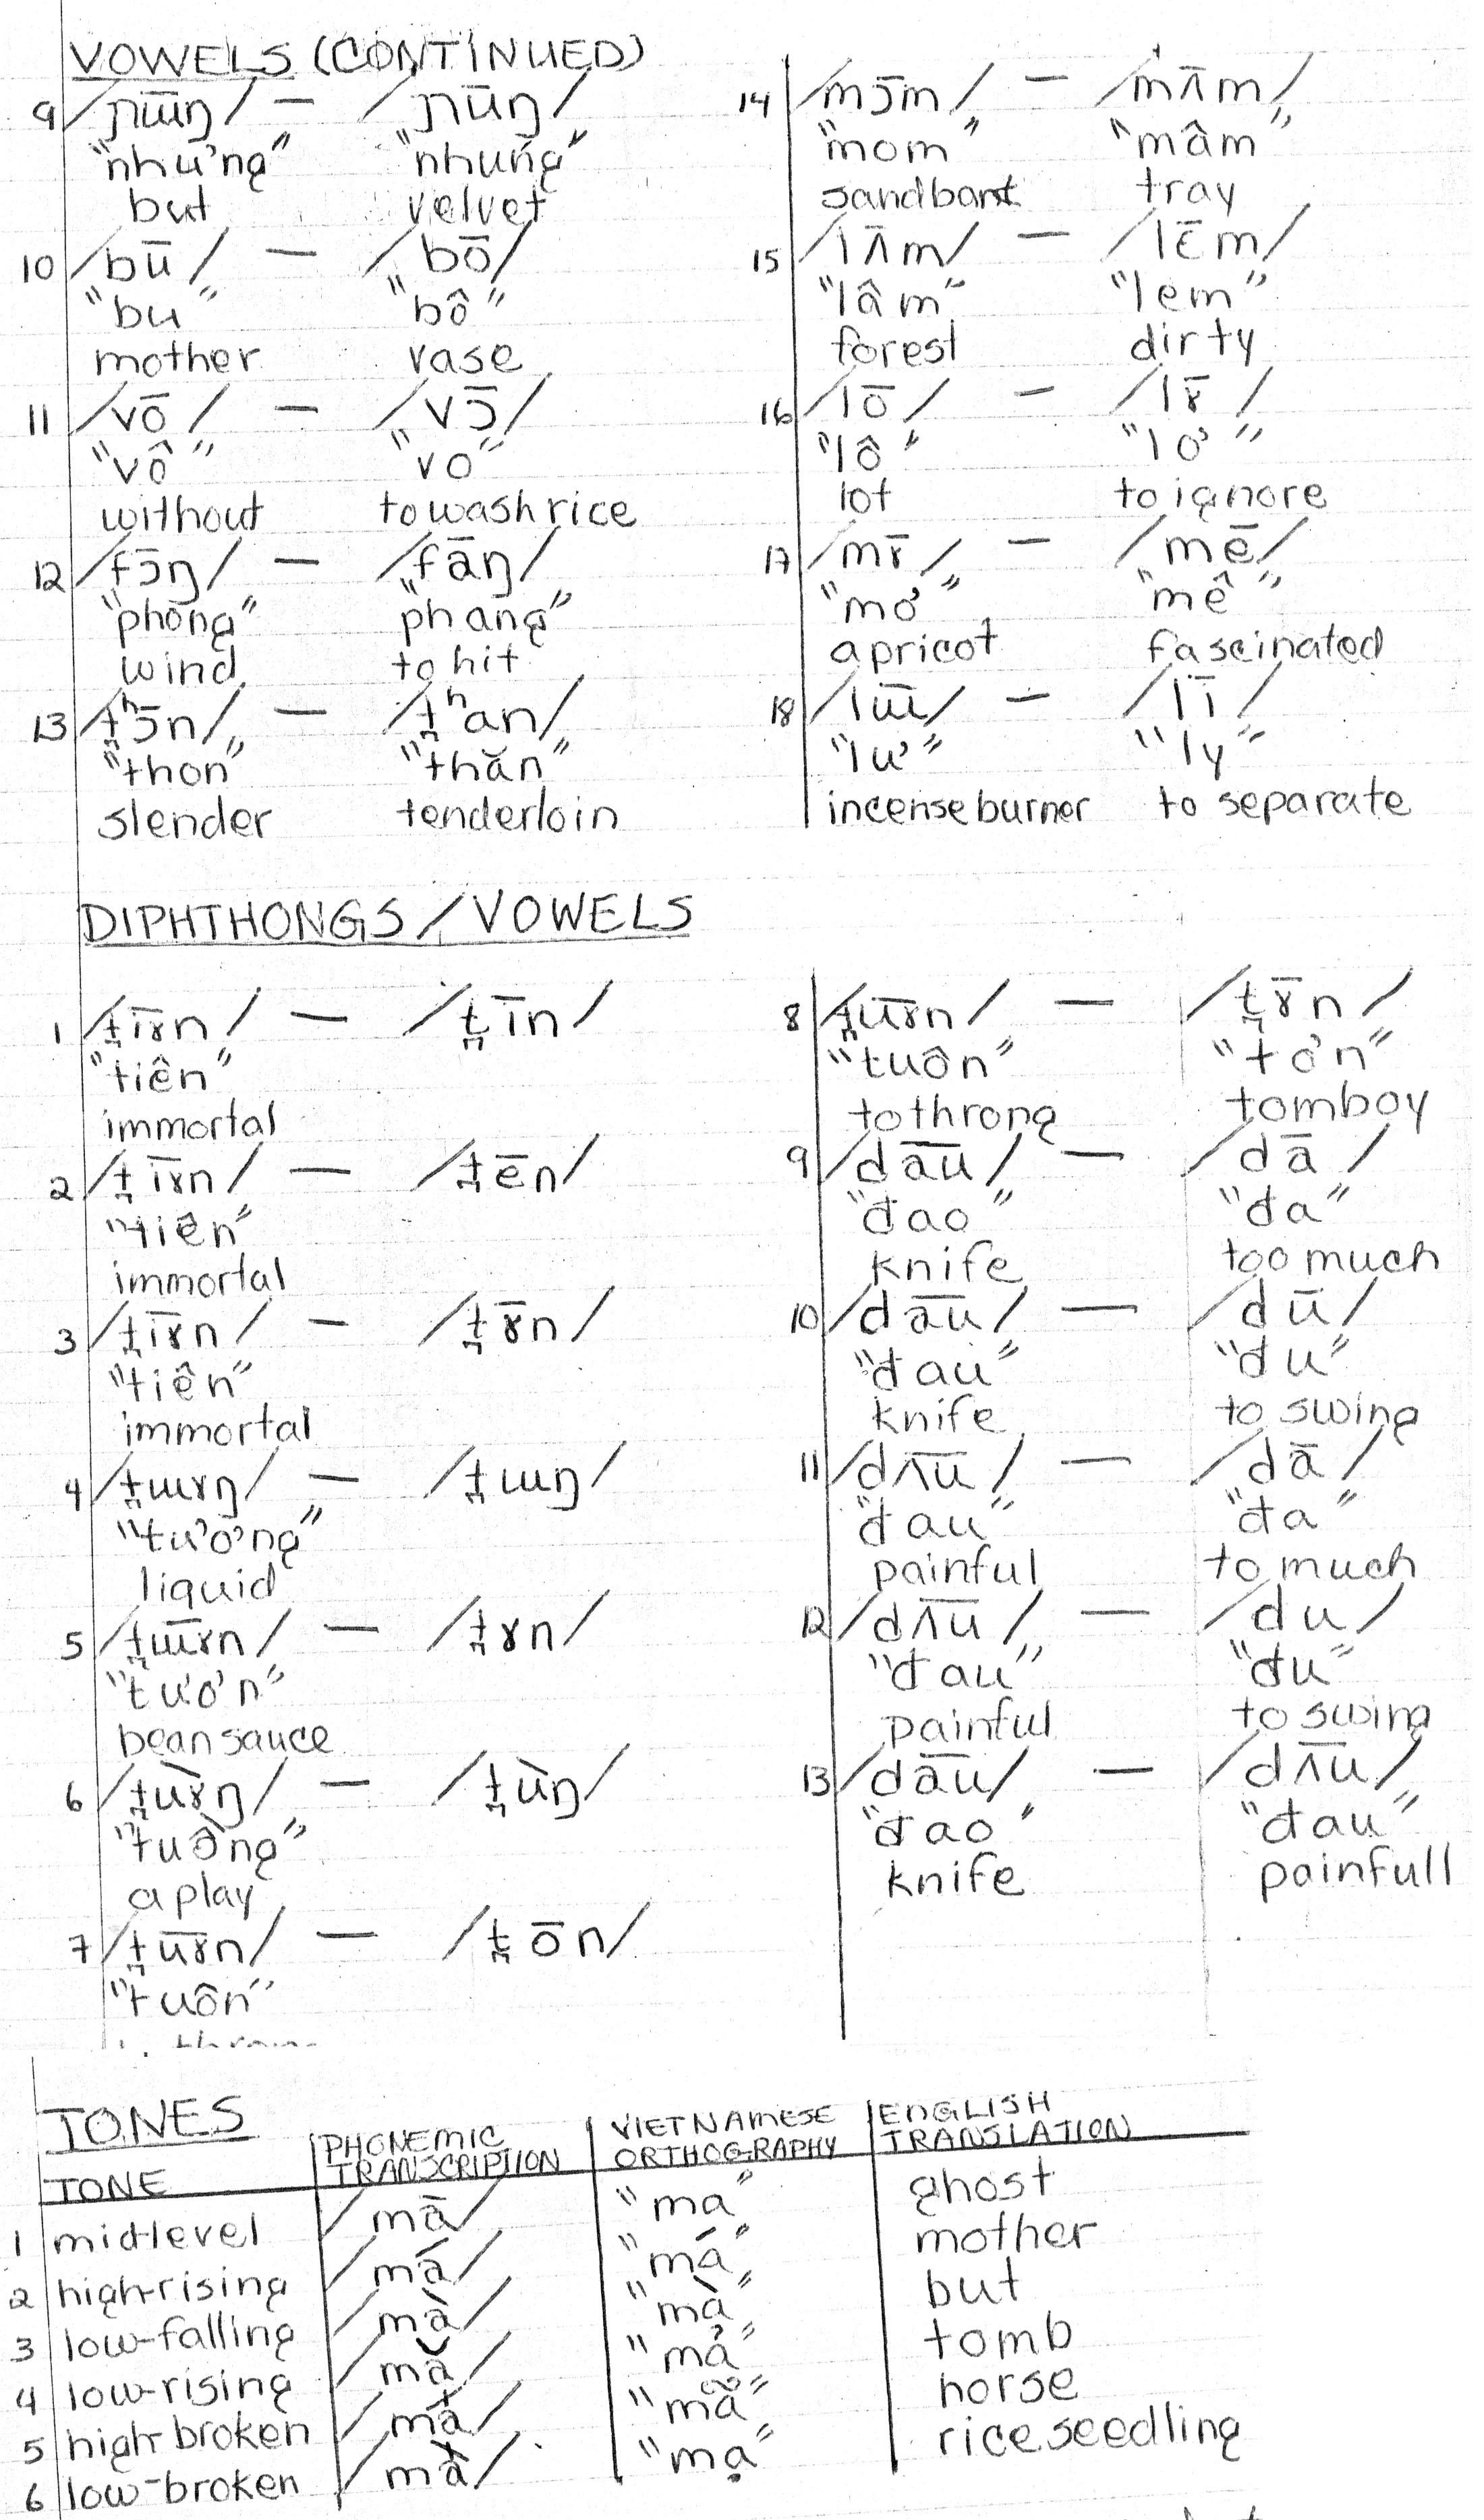 VOWELS (CONTINUED)
9 /ɲɯ̄ŋ/ — /ɲūŋ/
"nhưng" "nhung"
but velvet
10 /bū/ — /bō/
"bu" "bô"
mother vase
11 /vō/ — /vɔ̄/
"vô" "vo"
without to wash rice
12 /fɔ̄ŋ/ — /fāŋ/
"phong" "phang"
wind to hit
13 /t̪ʰɔ̄n/ — /t̪ʰan/
"thon" "thăn"
slender tenderloin
14 /mɔ̄m/ — /mʌ̄m/
"mom" "mâm"
tray
15 /lʌ̄m/ — /lɛ̄m/
"lâm" "lem"
forest dirty
16 /lō/ — /lɤ̄/
"lô" "lơ"
lot to ignore
17 /mɤ̄/ — /mē/
"mơ" "mê"
apricot fascinated
18 /lɯ̄/ — /lī/
"lư" "ly"
incense burner to separate
DIPHTHONGS/VOWELS
1 /t̪īɤn/ — /t̪īn/
"tiên"
immortal
2 /t̪īɤn/ — /t̪ēn/
"tiên"
immortal
3 /t̪īɤn/ — /t̪ɤ̄n/
"tiên"
immortal
4 /t̪ɯɤŋ/ — /t̪ɯŋ/
"tương"
liquid
5 /t̪ɯ̄ɤn/ — /t̪ɤn/
"tươn"
bean sauce
6 /t̪ùɤŋ/ — /t̪ùŋ/
"tuồng"
a play
7 /t̪ūɤn/ — /t̪ōn/
"tuôn"
8 /t̪ūɤn/ — /t̪ɤ̄n/
"tuôn" "tơn"
to throng tomboy
9 /dāu/ — /dā/
"đao" "đa"
knife too much
10 /dāu/ — /dū/
"đau" "đu"
knife to swing
11 /dʌ̄u/ — /dā/
"đau" "đa"
painful to much
12 /dʌ̄u/ — /du/
"đau" "đu"
painful to swing
13 /dāu/ — /dʌ̄u/
"đao" "đau"
knife painfull
TONES
TONE PHONEMIC TRANSCRIPTION VIETNAMESE ORTHOGRAPHY ENGLISH TRANSLATION
1 mid-level /mā/ "ma" ghost
2 high-rising /má/ "má" mother
3 low-falling /mà/ "mà" but
4 low-rising /mǎ/ "mả" tomb
5 high-broken /ma/ "mã" horse
6 low-broken /ma/ "mạ" rice seedling